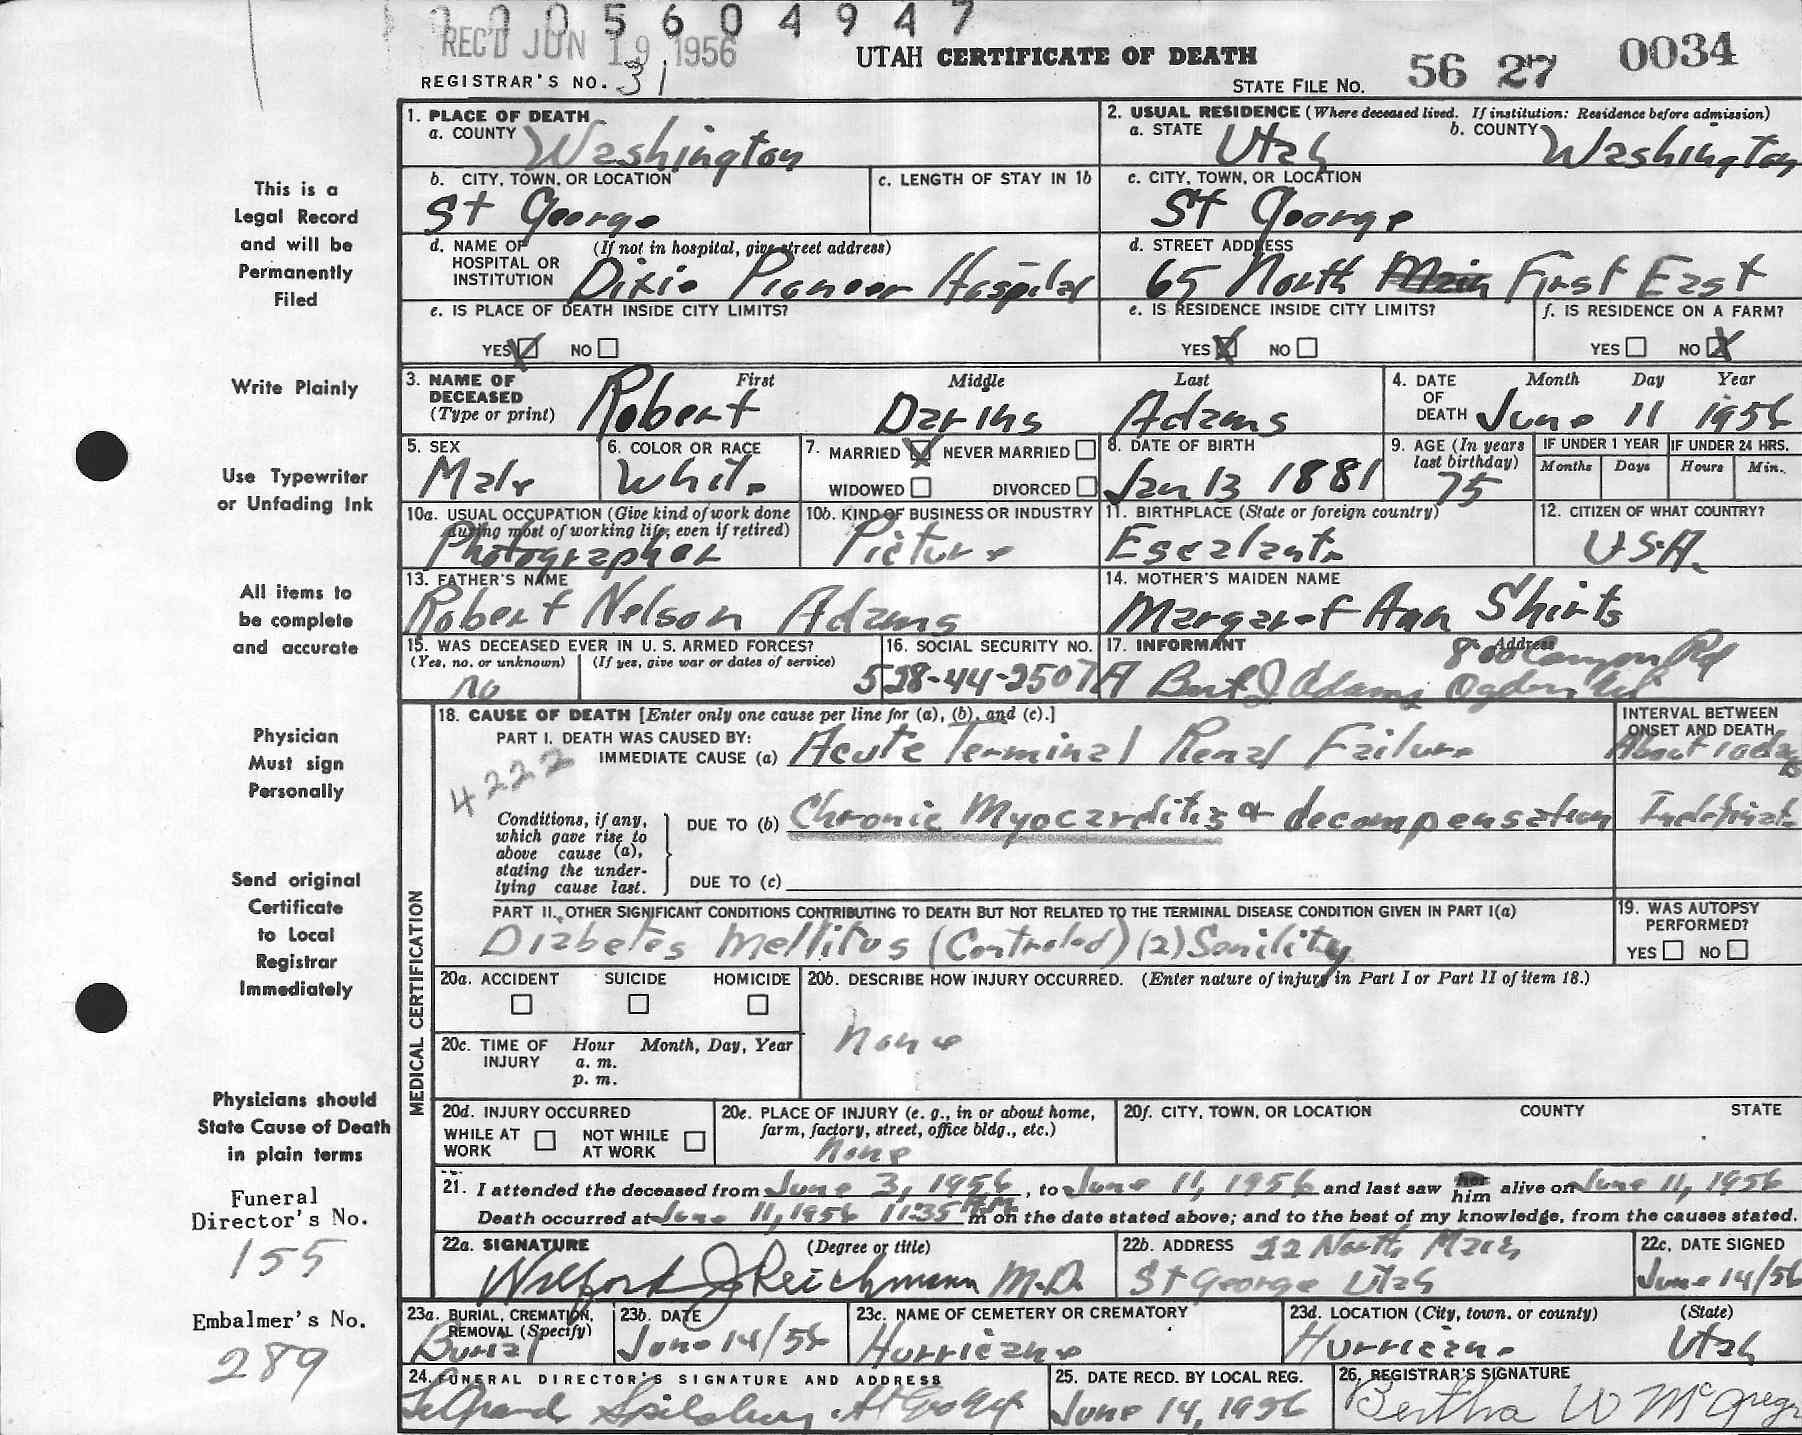 2005604947
REC'D JUN 19 1956
UTAH CERTIFICATE OF DEATH
56 27 0034
REGISTRAR'S NO. 31
STATE FILE NO.
This is a
Legal Record
and will be
Permanently
Filed
Write Plainly
Use Typewriter
or Unfading Ink
All items to
be complete
and accurate
Physician
Must sign
Personally
Send original
Certificate
to Local
Registrar
Immediately
Physicians should
State Cause of Death
in plain terms
Funeral
Director's No.
155
Embalmer's No.
289
1. PLACE OF DEATH
a. COUNTY Washington
2. USUAL RESIDENCE (Where deceased lived. If institution: Residence before admission)
a. STATE Utah b. COUNTY Washington
b. CITY, TOWN, OR LOCATION St George
c. LENGTH OF STAY IN 1b
c. CITY, TOWN, OR LOCATION St George
d. NAME OF HOSPITAL OR INSTITUTION (If not in hospital, give street address) Dixie Pioneer Hospital
d. STREET ADDRESS 65 North Main First East
e. IS PLACE OF DEATH INSIDE CITY LIMITS?
YES NO
e. IS RESIDENCE INSIDE CITY LIMITS?
YES NO
f. IS RESIDENCE ON A FARM?
YES NO
3. NAME OF DECEASED (Type or print) First Middle Last
Robert Darius Adams
4. DATE OF DEATH Month Day Year
June 11 1956
5. SEX Male
6. COLOR OR RACE White
7. MARRIED NEVER MARRIED
WIDOWED DIVORCED
8. DATE OF BIRTH Jan 13 1881
9. AGE (In years last birthday) 75
IF UNDER 1 YEAR Months Days
IF UNDER 24 HRS. Hours Min.
10a. USUAL OCCUPATION (Give kind of work done during most of working life, even if retired) Photographer
10b. KIND OF BUSINESS OR INDUSTRY Picture
11. BIRTHPLACE (State or foreign country) Escalante
12. CITIZEN OF WHAT COUNTRY? U.S.A.
13. FATHER'S NAME Robert Nelson Adams
14. MOTHER'S MAIDEN NAME Margaret Ann Shirts
15. WAS DECEASED EVER IN U. S. ARMED FORCES?
(Yes, no. or unknown) (If yes, give war or dates of service)
no
16. SOCIAL SECURITY NO. 528-44-2507A
17. INFORMANT Address
Bert J Adams 800 Canyon Rd Ogden Ut
MEDICAL CERTIFICATION
18. CAUSE OF DEATH [Enter only one cause per line for (a), (b), and (c).]
INTERVAL BETWEEN ONSET AND DEATH
PART I. DEATH WAS CAUSED BY:
IMMEDIATE CAUSE (a) Acute Terminal Renal Failure About 10 days
4222
Conditions, if any, which gave rise to above cause (a), stating the underlying cause last.
DUE TO (b) Chronic Myocarditis & decompensation Indefinate
DUE TO (c)
PART II. OTHER SIGNIFICANT CONDITIONS CONTRIBUTING TO DEATH BUT NOT RELATED TO THE TERMINAL DISEASE CONDITION GIVEN IN PART I(a)
Diabetes Mellitus (Controled) (2) Senility
19. WAS AUTOPSY PERFORMED?
YES NO
20a. ACCIDENT SUICIDE HOMICIDE
20b. DESCRIBE HOW INJURY OCCURRED. (Enter nature of injury in Part I or Part II of item 18.)
None
20c. TIME OF INJURY Hour a. m. p. m. Month, Day, Year
20d. INJURY OCCURRED
WHILE AT WORK NOT WHILE AT WORK
20e. PLACE OF INJURY (e. g., in or about home, farm, factory, street, office bldg., etc.)
none
20f. CITY, TOWN, OR LOCATION COUNTY STATE
21. I attended the deceased from June 3, 1956, to June 11, 1956 and last saw her him alive on June 11, 1956
Death occurred at June 11, 1956 11:35 PM m on the date stated above; and to the best of my knowledge, from the causes stated.
22a. SIGNATURE (Degree or title)
Wilford J Reichmann M.D.
22b. ADDRESS 22 North Main
St George Utah
22c. DATE SIGNED
June 14/56
23a. BURIAL, CREMATION, REMOVAL (Specify) Burial
23b. DATE June 14/56
23c. NAME OF CEMETERY OR CREMATORY Hurricane
23d. LOCATION (City, town, or county) (State)
Hurricane Utah
24. FUNERAL DIRECTOR'S SIGNATURE AND ADDRESS
LeGrand Spilsbury
25. DATE RECD. BY LOCAL REG.
June 14, 1956
26. REGISTRAR'S SIGNATURE
Bertha W McGregor